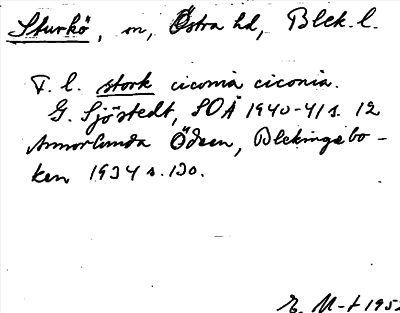 Sturkö, sn, Östra hd, Blek. l.
F. l. stork ciconia ciconia.
G. Sjöstedt, SOÅ 1940-41 s. 12
Annorlunda Ödeen, Blekingebo-
ken 1934 s. 130.
E. M-t 1952